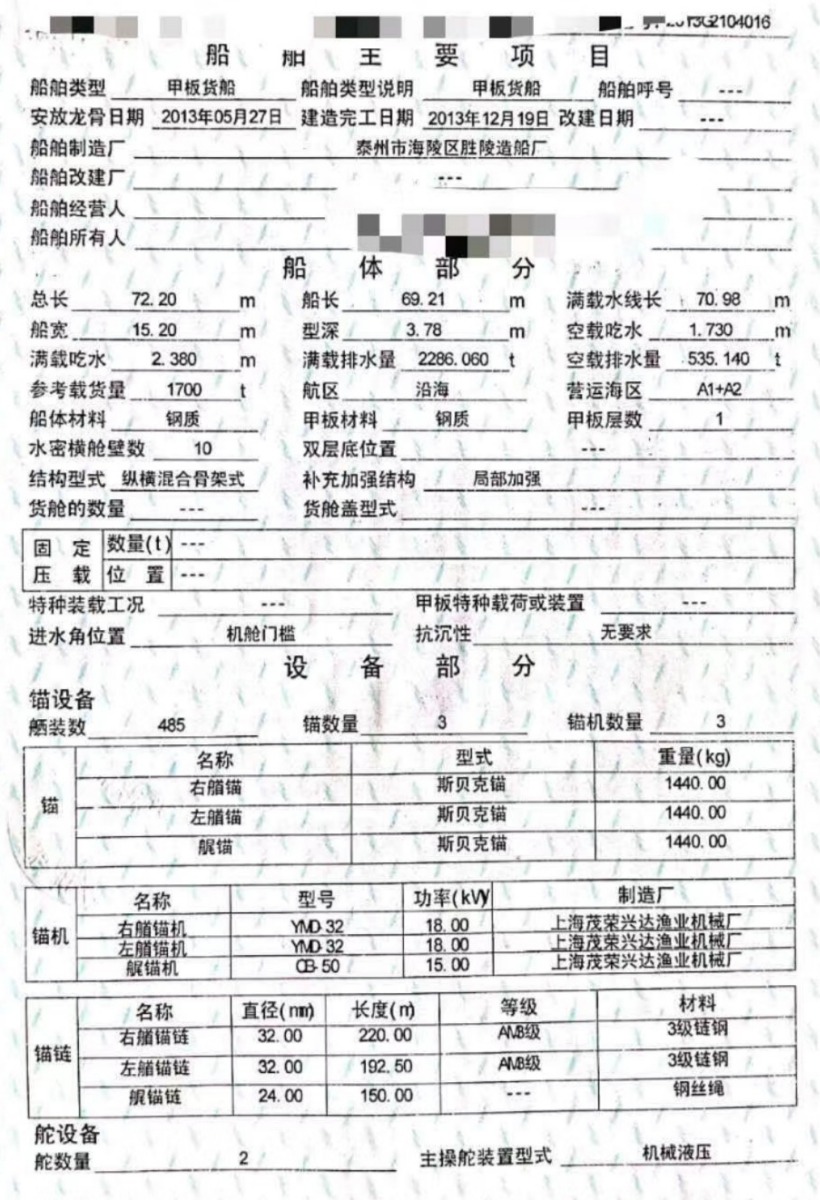 2013G2104016
船舶主要项目
船舶类型 甲板货船 船舶类型说明 甲板货船 船舶呼号 ---
安放龙骨日期 2013年05月27日 建造完工日期 2013年12月19日 改建日期 ---
船舶制造厂 泰州市海陵区胜陵造船厂
船舶改建厂 ---
船舶经营人
船舶所有人
船体部分
总长 72.20 m 船长 69.21 m 满载水线长 70.98 m
船宽 15.20 m 型深 3.78 m 空载吃水 1.730 m
满载吃水 2.380 m 满载排水量 2286.060 t 空载排水量 535.140 t
参考载货量 1700 t 航区 沿海 营运海区 A1+A2
船体材料 钢质 甲板材料 钢质 甲板层数 1
水密横舱壁数 10 双层底位置 ---
结构型式 纵横混合骨架式 补充加强结构 局部加强
货舱的数量 --- 货舱盖型式 ---
固定 数量(t) ---
压载 位置 ---
特种装载工况 --- 甲板特种载荷或装置 ---
进水角位置 机舱门槛 抗沉性 无要求
设备部分
锚设备
舾装数 485 锚数量 3 锚机数量 3
名称 型式 重量(kg)
右艏锚 斯贝克锚 1440.00
锚
左艏锚 斯贝克锚 1440.00
艉锚 斯贝克锚 1440.00
名称 型号 功率(kW) 制造厂
右艏锚机 YMD-32 18.00 上海茂荣兴达渔业机械厂
锚机
左艏锚机 YMD-32 18.00 上海茂荣兴达渔业机械厂
艉锚机 CB-50 15.00 上海茂荣兴达渔业机械厂
名称 直径(mm) 长度(m) 等级 材料
右艏锚链 32.00 220.00 AM3级 3级链钢
锚链
左艏锚链 32.00 192.50 AM3级 3级链钢
艉锚链 24.00 150.00 --- 钢丝绳
舵设备
舵数量 2 主操舵装置型式 机械液压